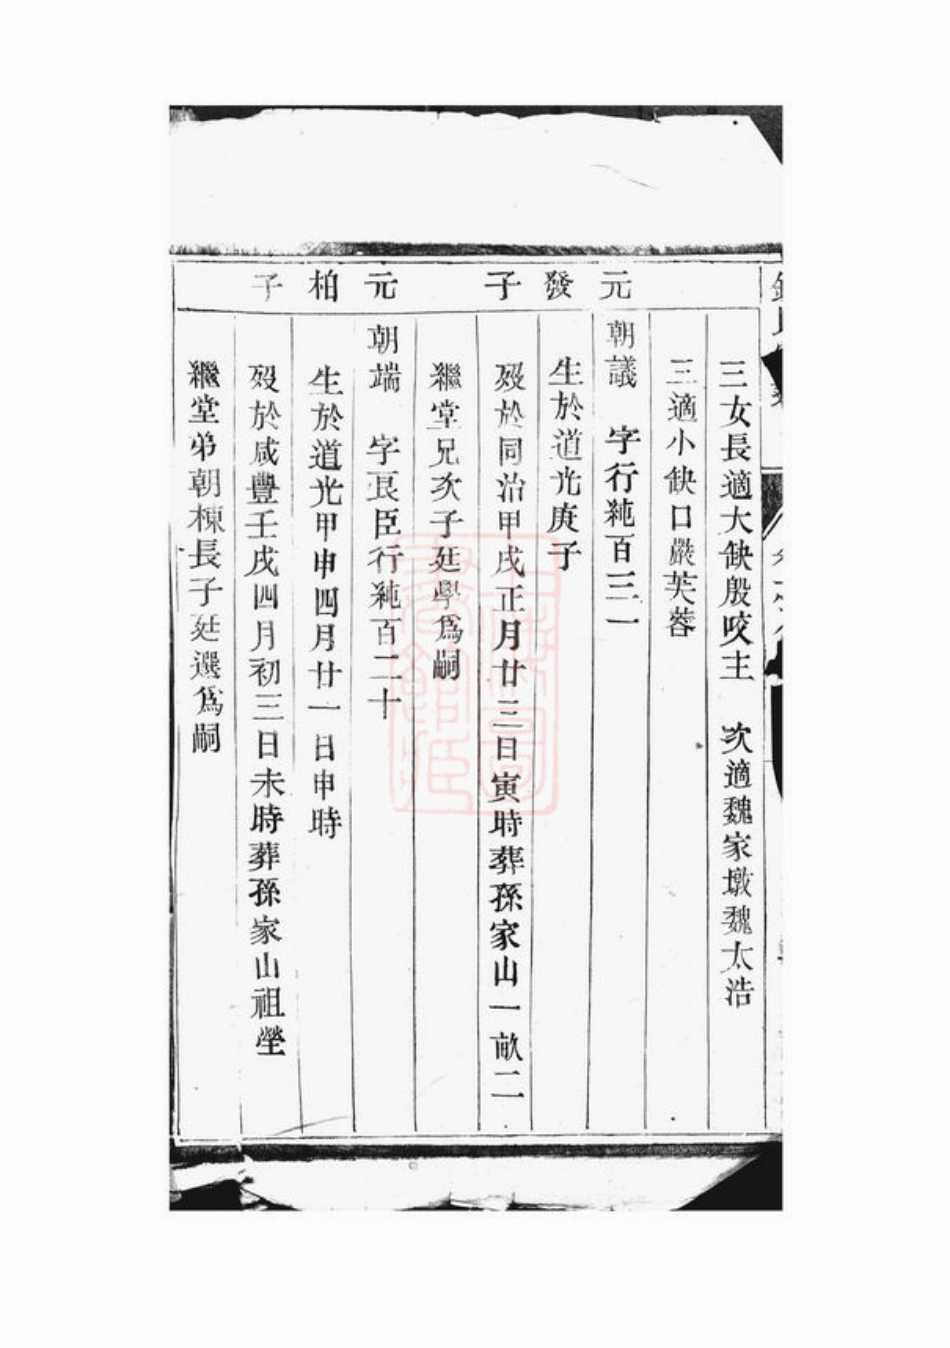 三女長適大缺殷咬主　次適魏家墩魏太浩
三適小缺口嚴芙蓉
元發子
朝議　字行純百三一
生於道光庚子
歿於同治甲戌正月廿三日寅時葬孫家山一畝二
繼堂兄次子廷學爲嗣
元柏子
朝端　字長臣行純百二十
生於道光甲申四月廿一日申時
歿於咸豐壬戌四月初三日未時葬孫家山祖塋
繼堂弟朝棟長子廷選爲嗣